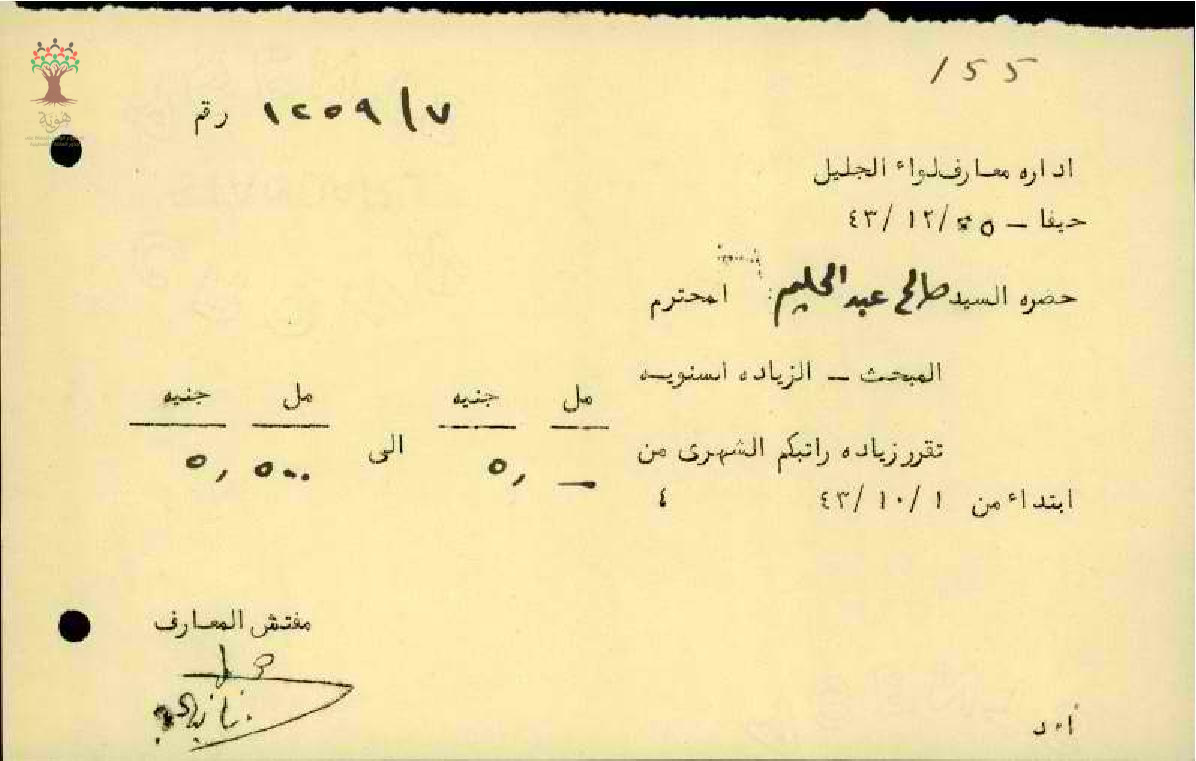 155
رقم ١٢٥٩/٧
هوية
اداره معارف لواء الجليل
حيفا – ٥ /١٢ /٤٣
حضره السيد صالح عبد الحليم المحترم
المبحث – الزياده السنويه
مل جنيه مل جنيه
تقرر زياده راتبكم الشهرى من — ,٥ الى ٥٠٠ ,٥
ابتداء من ١ /١٠ /٤٣ ٤
مفتش المعارف
أ٠د